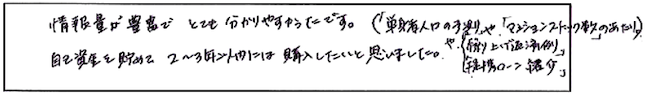 情報量が豊富で とても分かりやすかったです。(「単身者人口の手塁」や、「マンションストック数」のあたり)
自己資金を貯めて 2〜3年以内には購入したいと思いました。や、「繰り上げ返済例」
「提携ローン紹介」